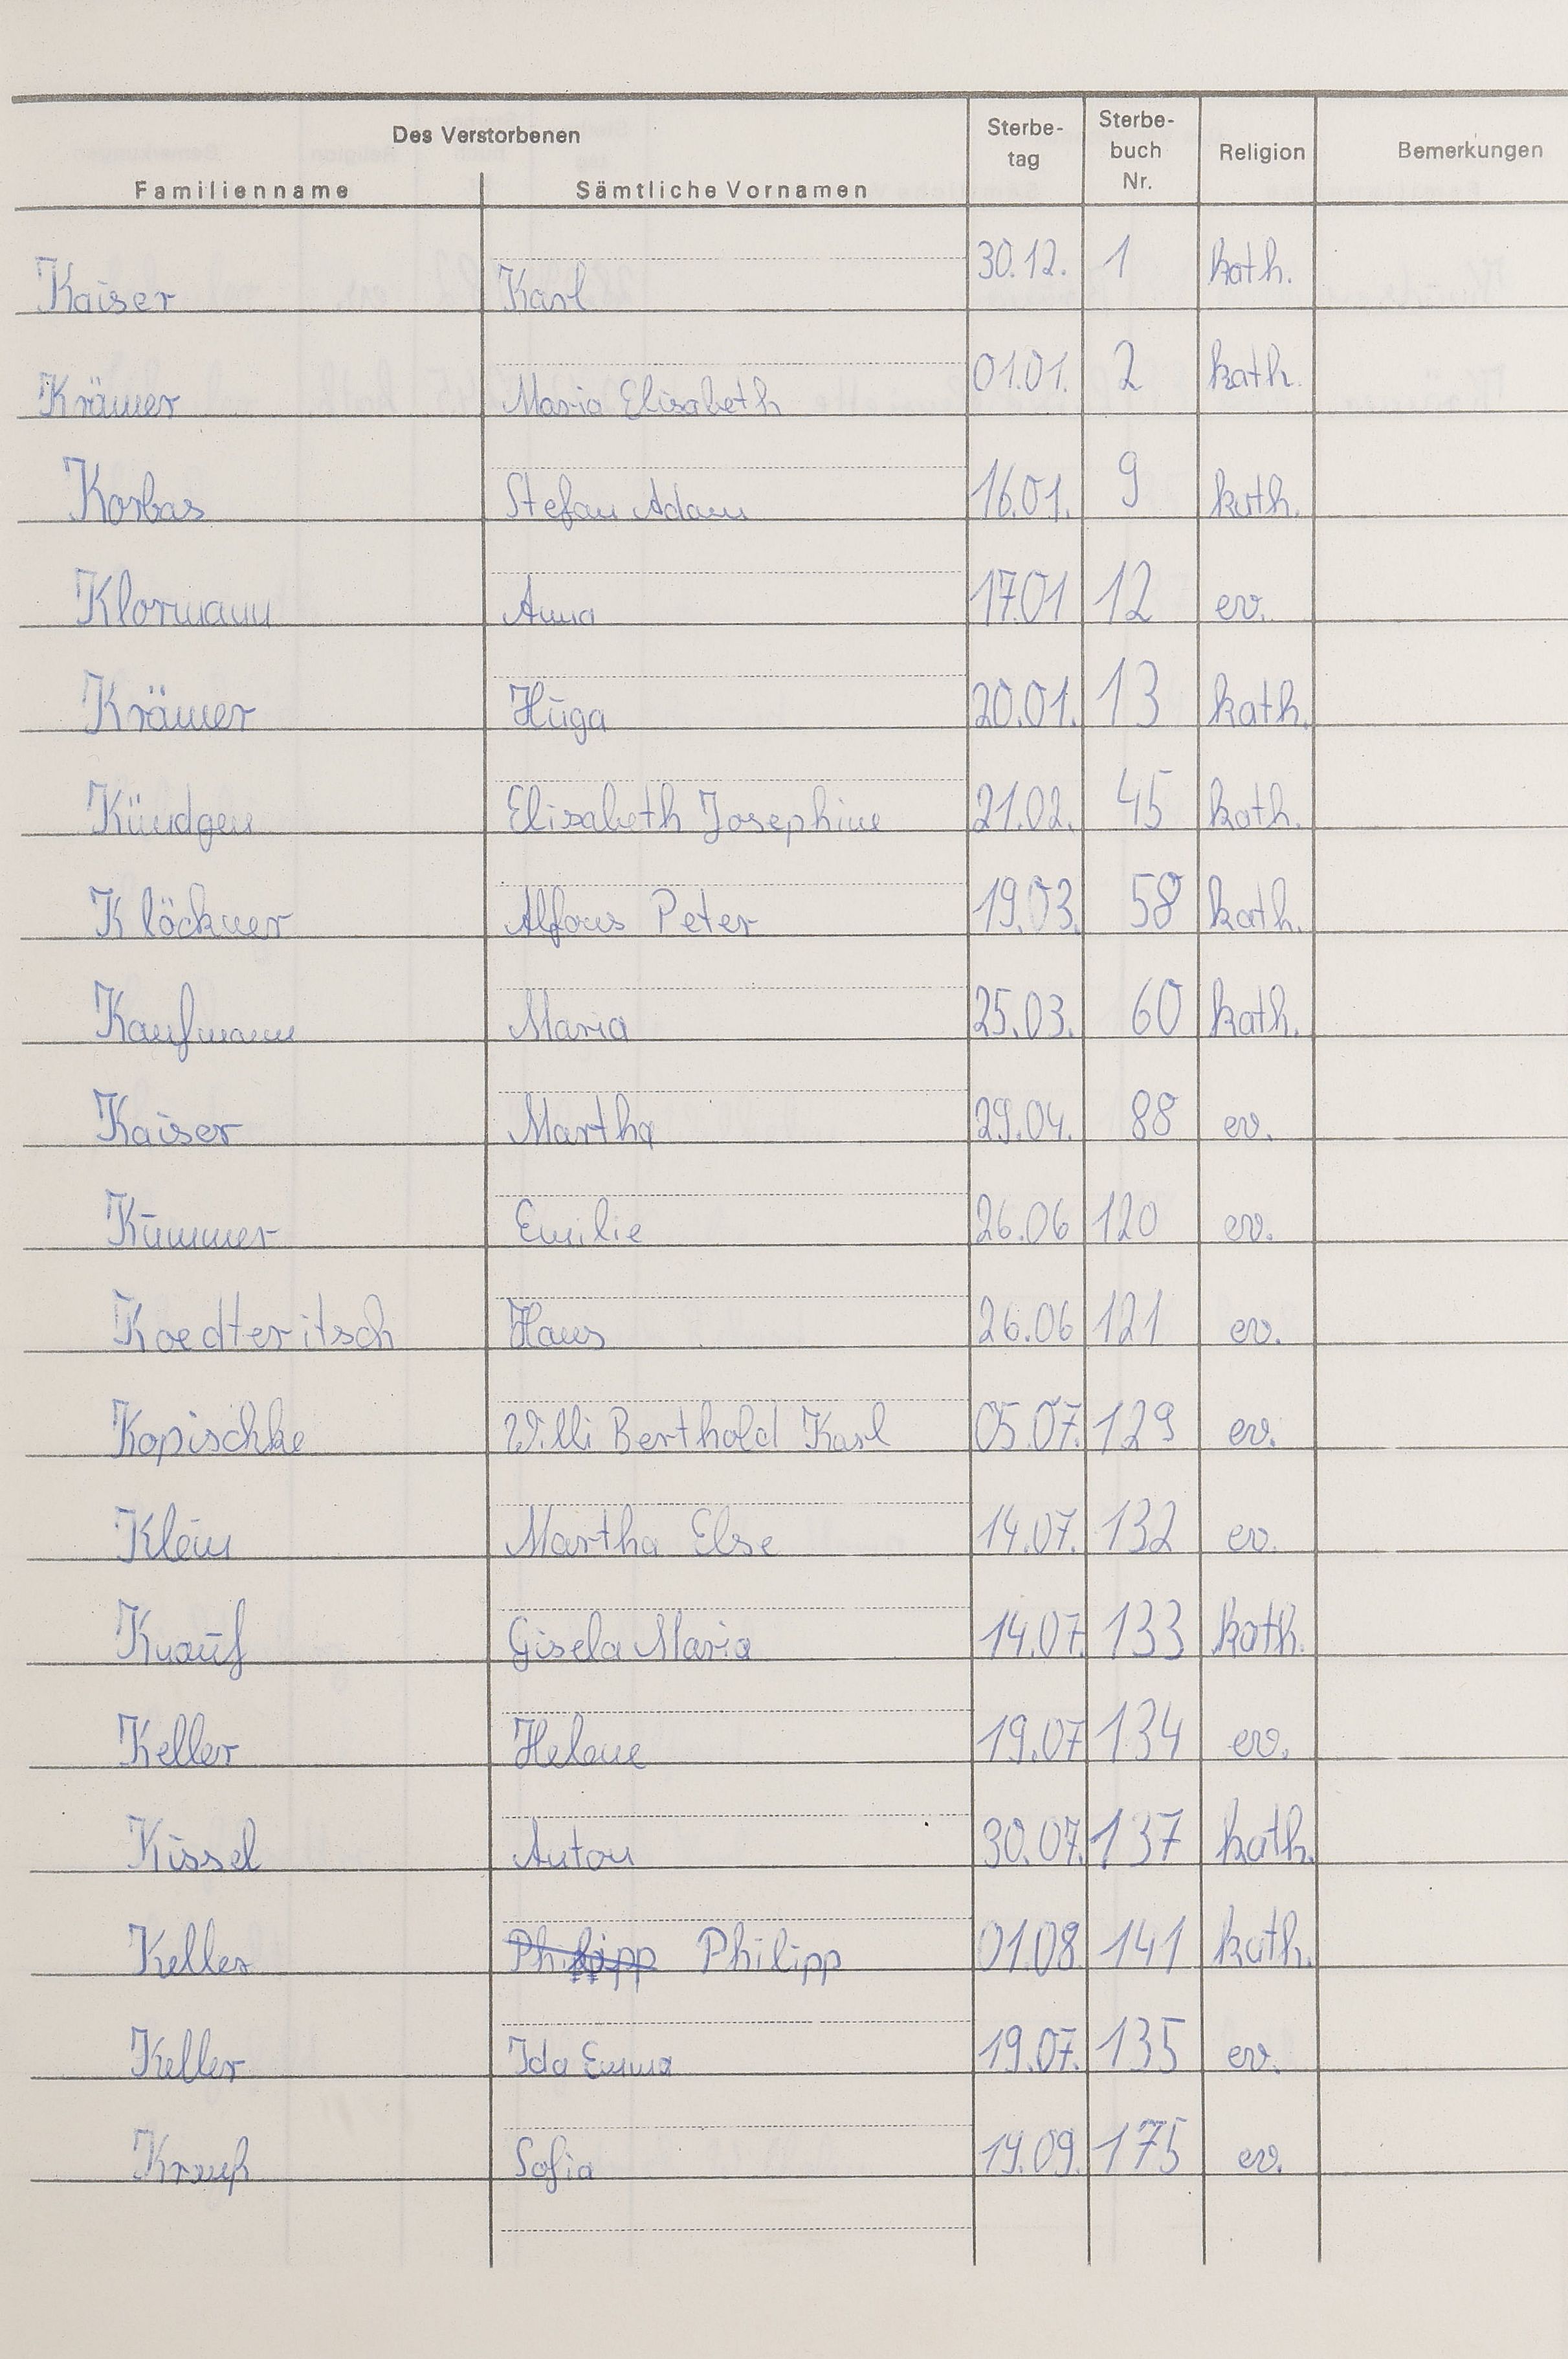 Des Verstorbenen
Familienname Sämtliche Vornamen Sterbe-tag Sterbe-buch Nr. Religion Bemerkungen
Kaiser Karl 30.12. 1 kath.
Krämer Maria Elisabeth 01.01. 2 kath.
Korbas Stefan Adam 16.01. 9 kath.
Klormann Anna 17.01 12 ev.
Krämer Hūga 20.01. 13 kath.
Kündgen Elisabeth Josephine 21.02. 45 kath.
Klöckner Alfons Peter 19.03. 58 kath.
Kaufmann Maria 25.03. 60 kath.
Kaiser Martha 29.04. 88 ev.
Kūmmer Emilie 26.06 120 ev.
Koedteritsch Hans 26.06 121 ev.
Kopischke Willi Berthold Karl 05.07. 129 ev.
Klein Martha Else 14.07. 132 ev.
Knaūf Gisela Maria 14.07. 133 kath.
Keller Helene 19.07 134 ev.
Kissel Anton 30.07. 137 kath.
Keller Philipp Philipp 01.08. 141 kath.
Keller Ida Emma 19.07. 135 ev.
Krauß Sofia 19.09. 175 ev.